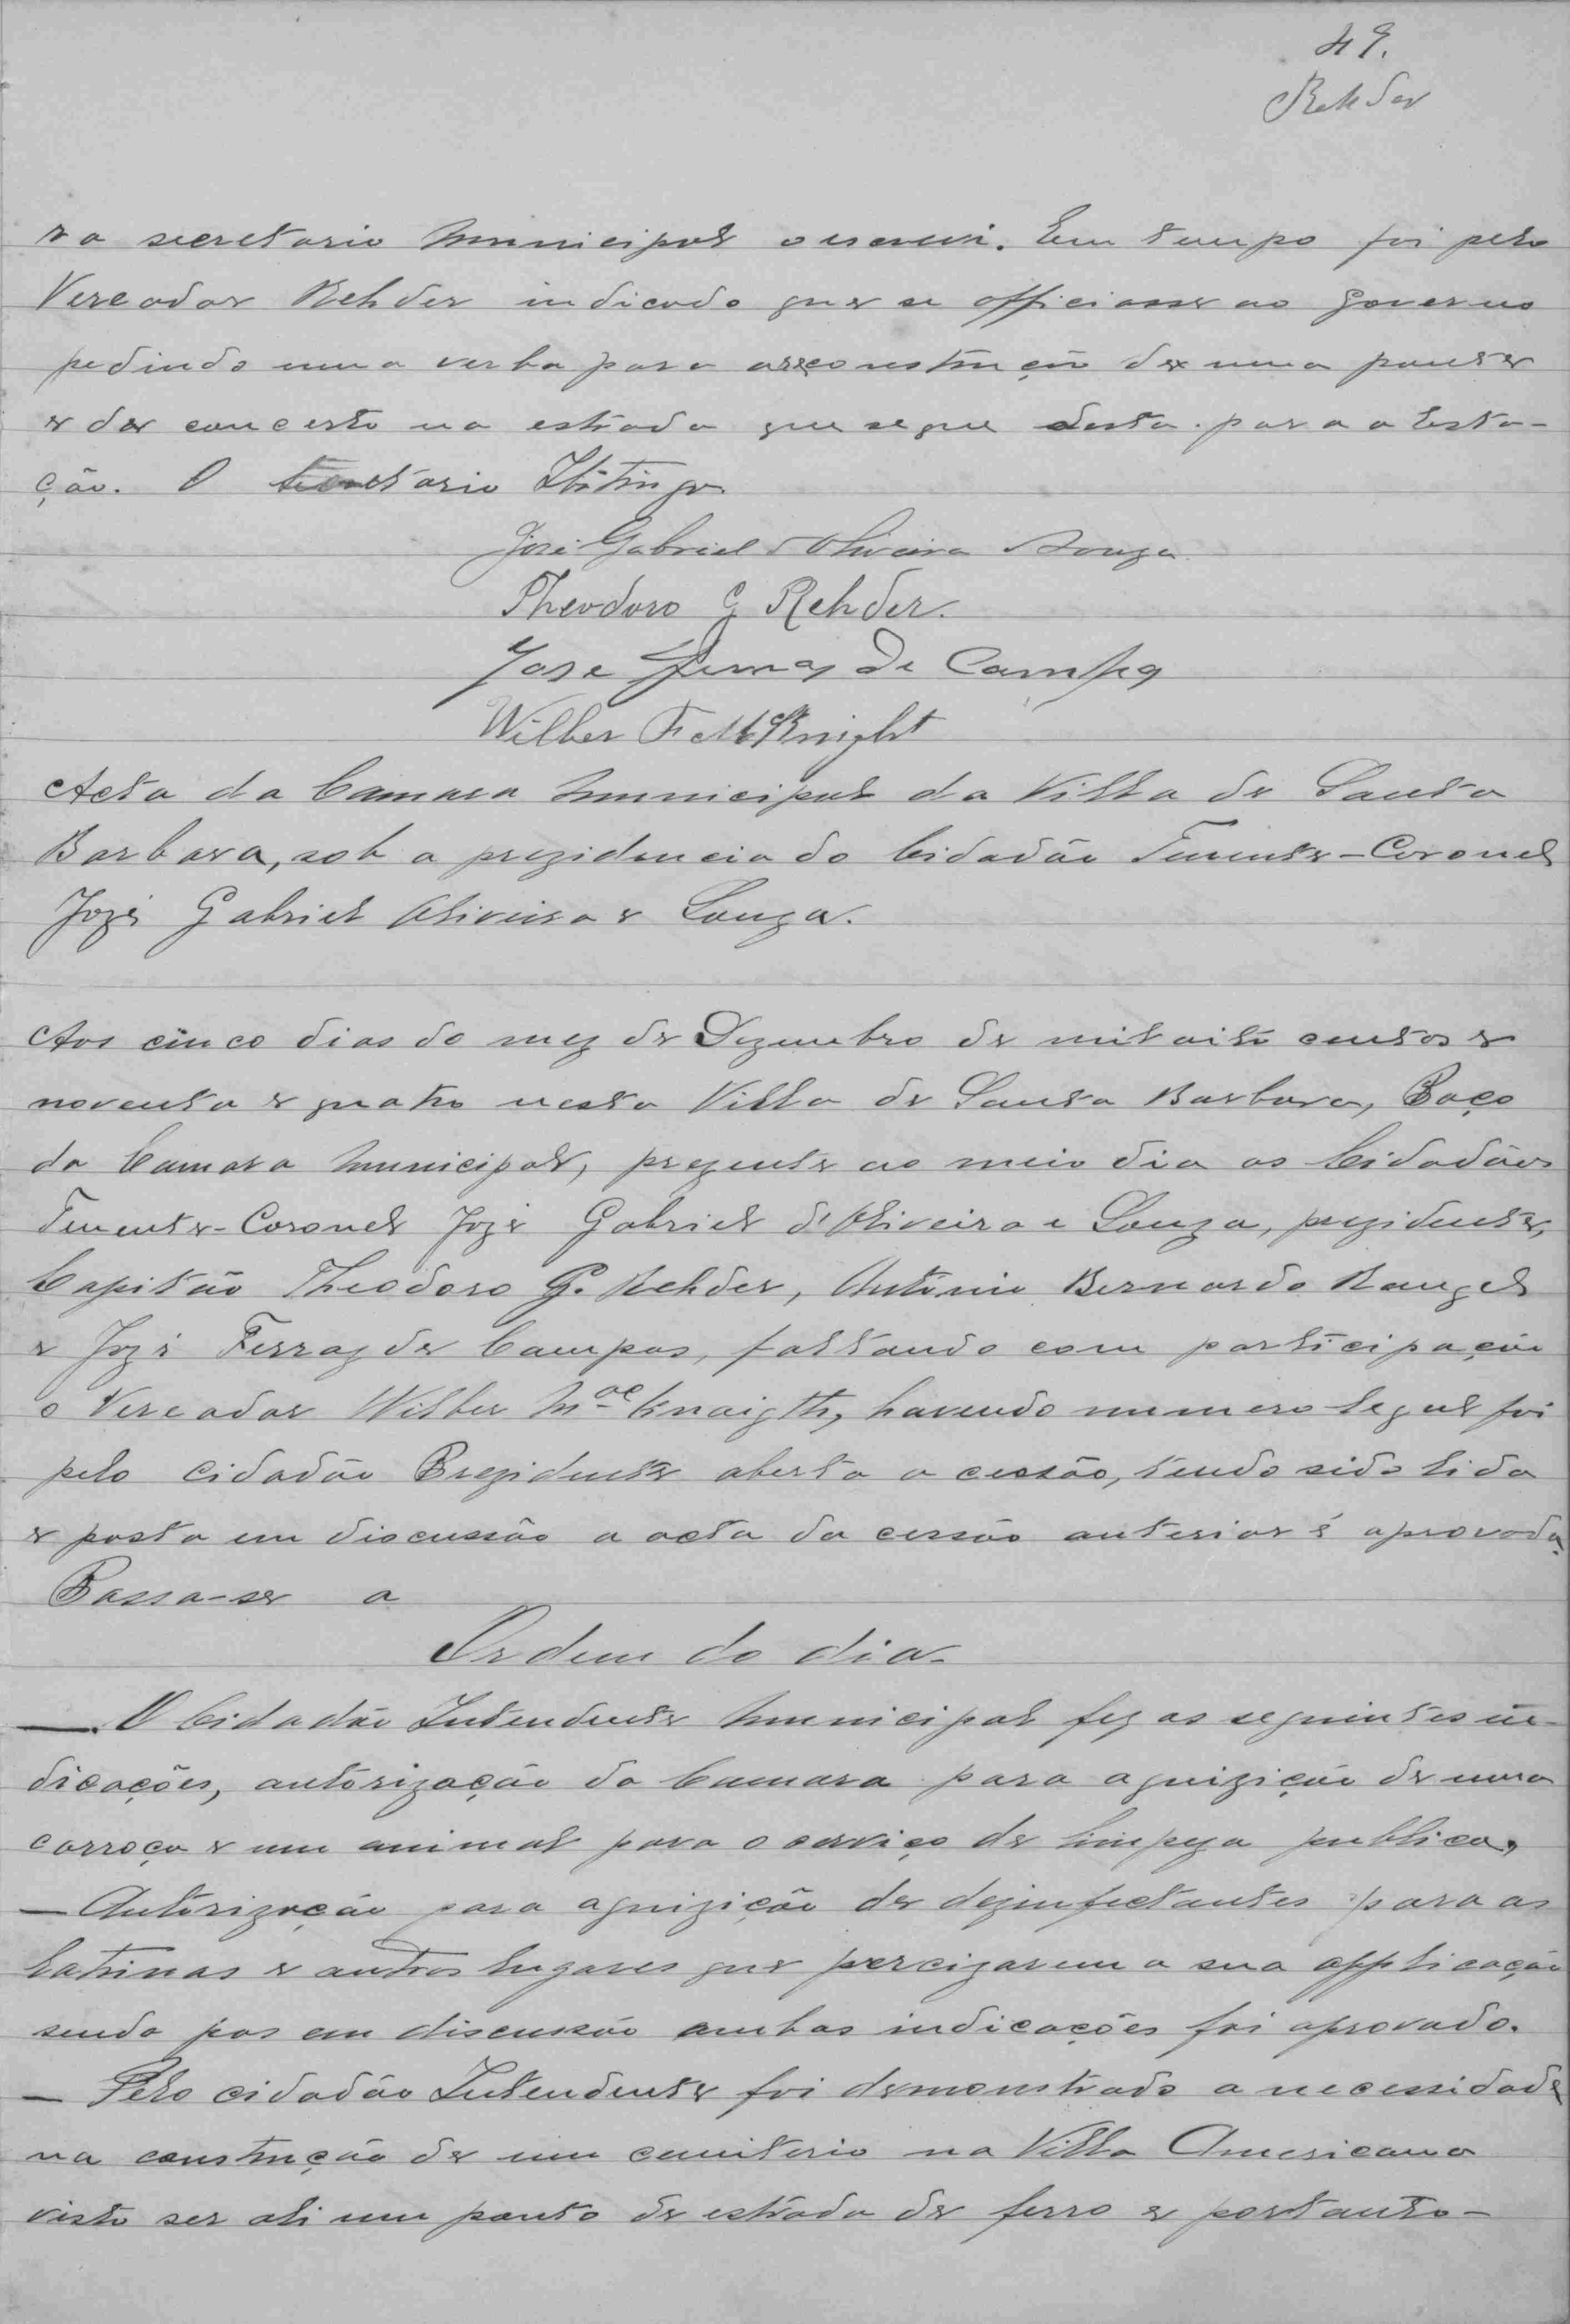 49.
Rehder
ra secretario Municipal o escrevi. Em tempo foi pelo
Vereador Rehder indicado que se officiasse ao Governo
pedindo uma verba para a reconstrução de uma ponte
e do concerto na estrada que segue desta para a Esta-
ção. O Secretario Ibitinga
José Gabriel d'Oliveira Souza
Theodoro G Rehder.
Jose Ferraz de Campos
Wilber F McKnight
Acta da Camara Municipal da Villa de Santa
Barbara, sob a prezidencia do Cidadão Tenente-Coronel
Jozé Gabriel Oliveira e Souza.
Aos cinco dias do mez de Dezembro de mil oito centos e
noventa e quatro nesta Villa de Santa Barbara, Paço
da Camara Municipal, prezente ao meio dia os Cidadãos
Tenente-Coronel Jozé Gabriel d'Oliveira e Souza, prezidente,
Capitão Theodoro G. Rehder, Antonio Bernardo Rangel
e Jozé Ferraz de Campos, faltando com participação
o Vereador Wilber Mac Knaigth, havendo numero legal foi
pelo cidadão Prezidente aberta a cessão, tendo sido lida
e posta em discussão a acta da cessão anterior é aprovada.
Passa-se a
Ordem do dia.
— O Cidadão Intendente Municipal fez as seguintes in-
dicações, autorização da Camara para aquizição de uma
carroça e um animal para o serviço de limpeza publica,
— Autorização para aquizição de dezinfectantes para as
latrinas e outros lugares que percizarem a sua applicação
sendo pos em discussão ambas indicações foi aprovado.
— Pelo cidadão Intendente foi demonstrado a necessidade
na construção de um cemiterio na Villa Americana
visto ser ali um ponto de estrada de ferro e portanto-